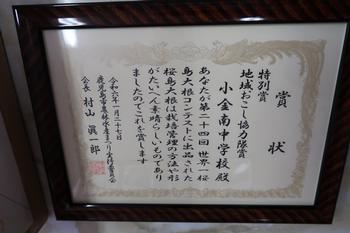 賞状
特別賞
地域おこし協力隊賞
小金南中学校殿
あなたが第二十四回世界一桜
島大根コンテストに出品された
桜島大根は栽培管理の方法や形
がたいへん素晴らしいものであり
ましたのでこれを賞します
令和六年一月二十七日
鹿児島市農林水産まつり実行委員会
会長 村山眞一郎